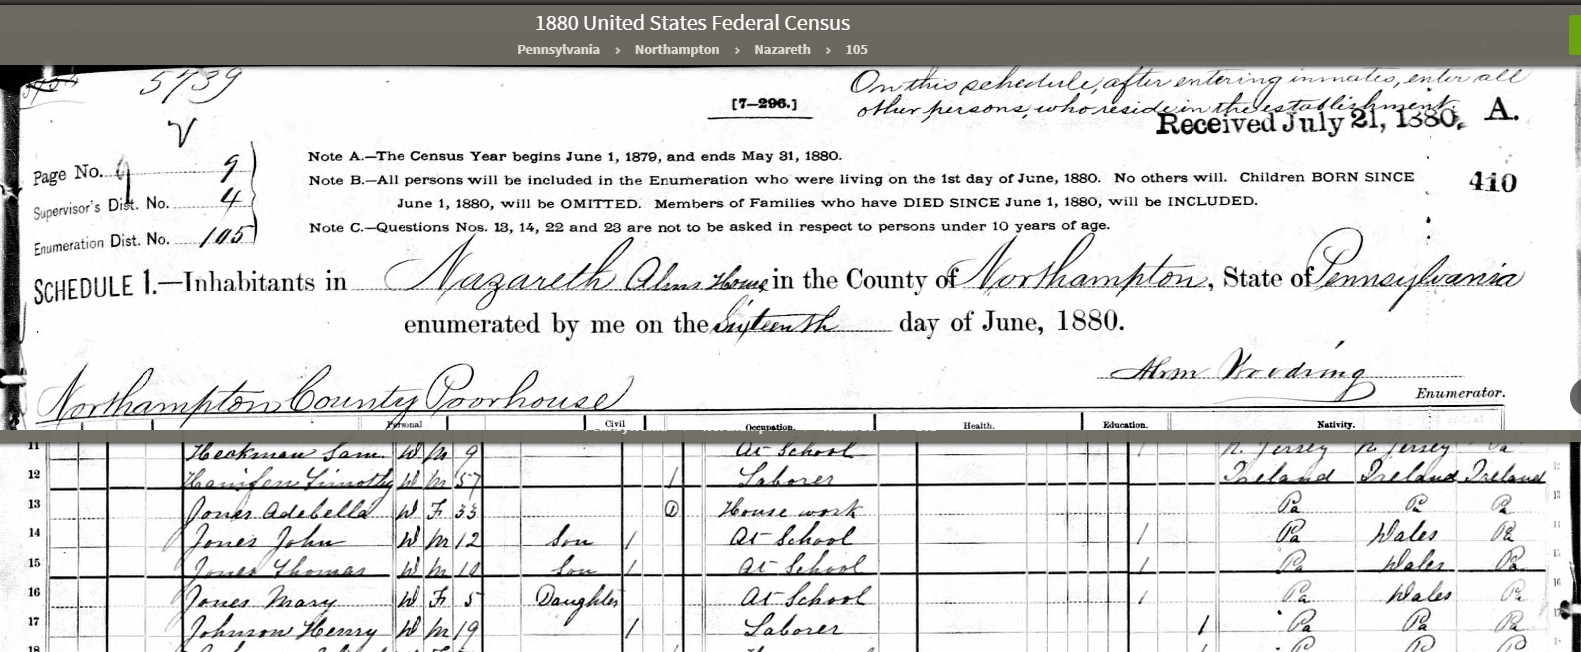 1880 United States Federal Census
Pennsylvania > Northampton > Nazareth > 105
5739
[7-296.]
On this schedule, after entering inmates, enter all
other persons, who reside in the establishment.
Received July 21, 1880. A.
Note A.—The Census Year begins June 1, 1879, and ends May 31, 1880.
Page No. 9 9
Note B.—All persons will be included in the Enumeration who were living on the 1st day of June, 1880. No others will. Children BORN SINCE
410
June 1, 1880, will be OMITTED. Members of Families who have DIED SINCE June 1, 1880, will be INCLUDED.
Supervisor's Dist. No. 4
Note C.—Questions Nos. 13, 14, 22 and 23 are not to be asked in respect to persons under 10 years of age.
Enumeration Dist. No. 105
SCHEDULE 1.—Inhabitants in Nazareth Alms House in the County of Northampton, State of Pennsylvania
enumerated by me on the Sixteenth day of June, 1880.
Enumerator.
Northampton County Poorhouse
Personal Civil Occupation. Health. Education. Nativity.
11 Heckman Sam. W M 9 At School 1 N. Jersey N. Jersey Pa
12 Timothy W M 57 1 Laborer Ireland Ireland Ireland
13 Jones Adebella W F 33 1 House work Pa Pa Pa
14 Jones John W M 12 Son 1 At School 1 Pa Wales Pa
15 Jones Thomas W M 10 Son 1 At School 1 Pa Wales Pa
16 Jones Mary W F 5 Daughter At School 1 Pa Wales Pa
17 Johnson Henry W M 19 1 Laborer 1 Pa Pa Pa
18